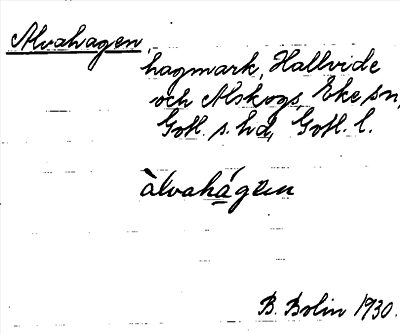 Alvahagen,
hagmark, Hallvide
och Alskogs, Eke sn,
Gotl. s. hd, Gotl. l.
àlvahágen
B. Bolin 1930.